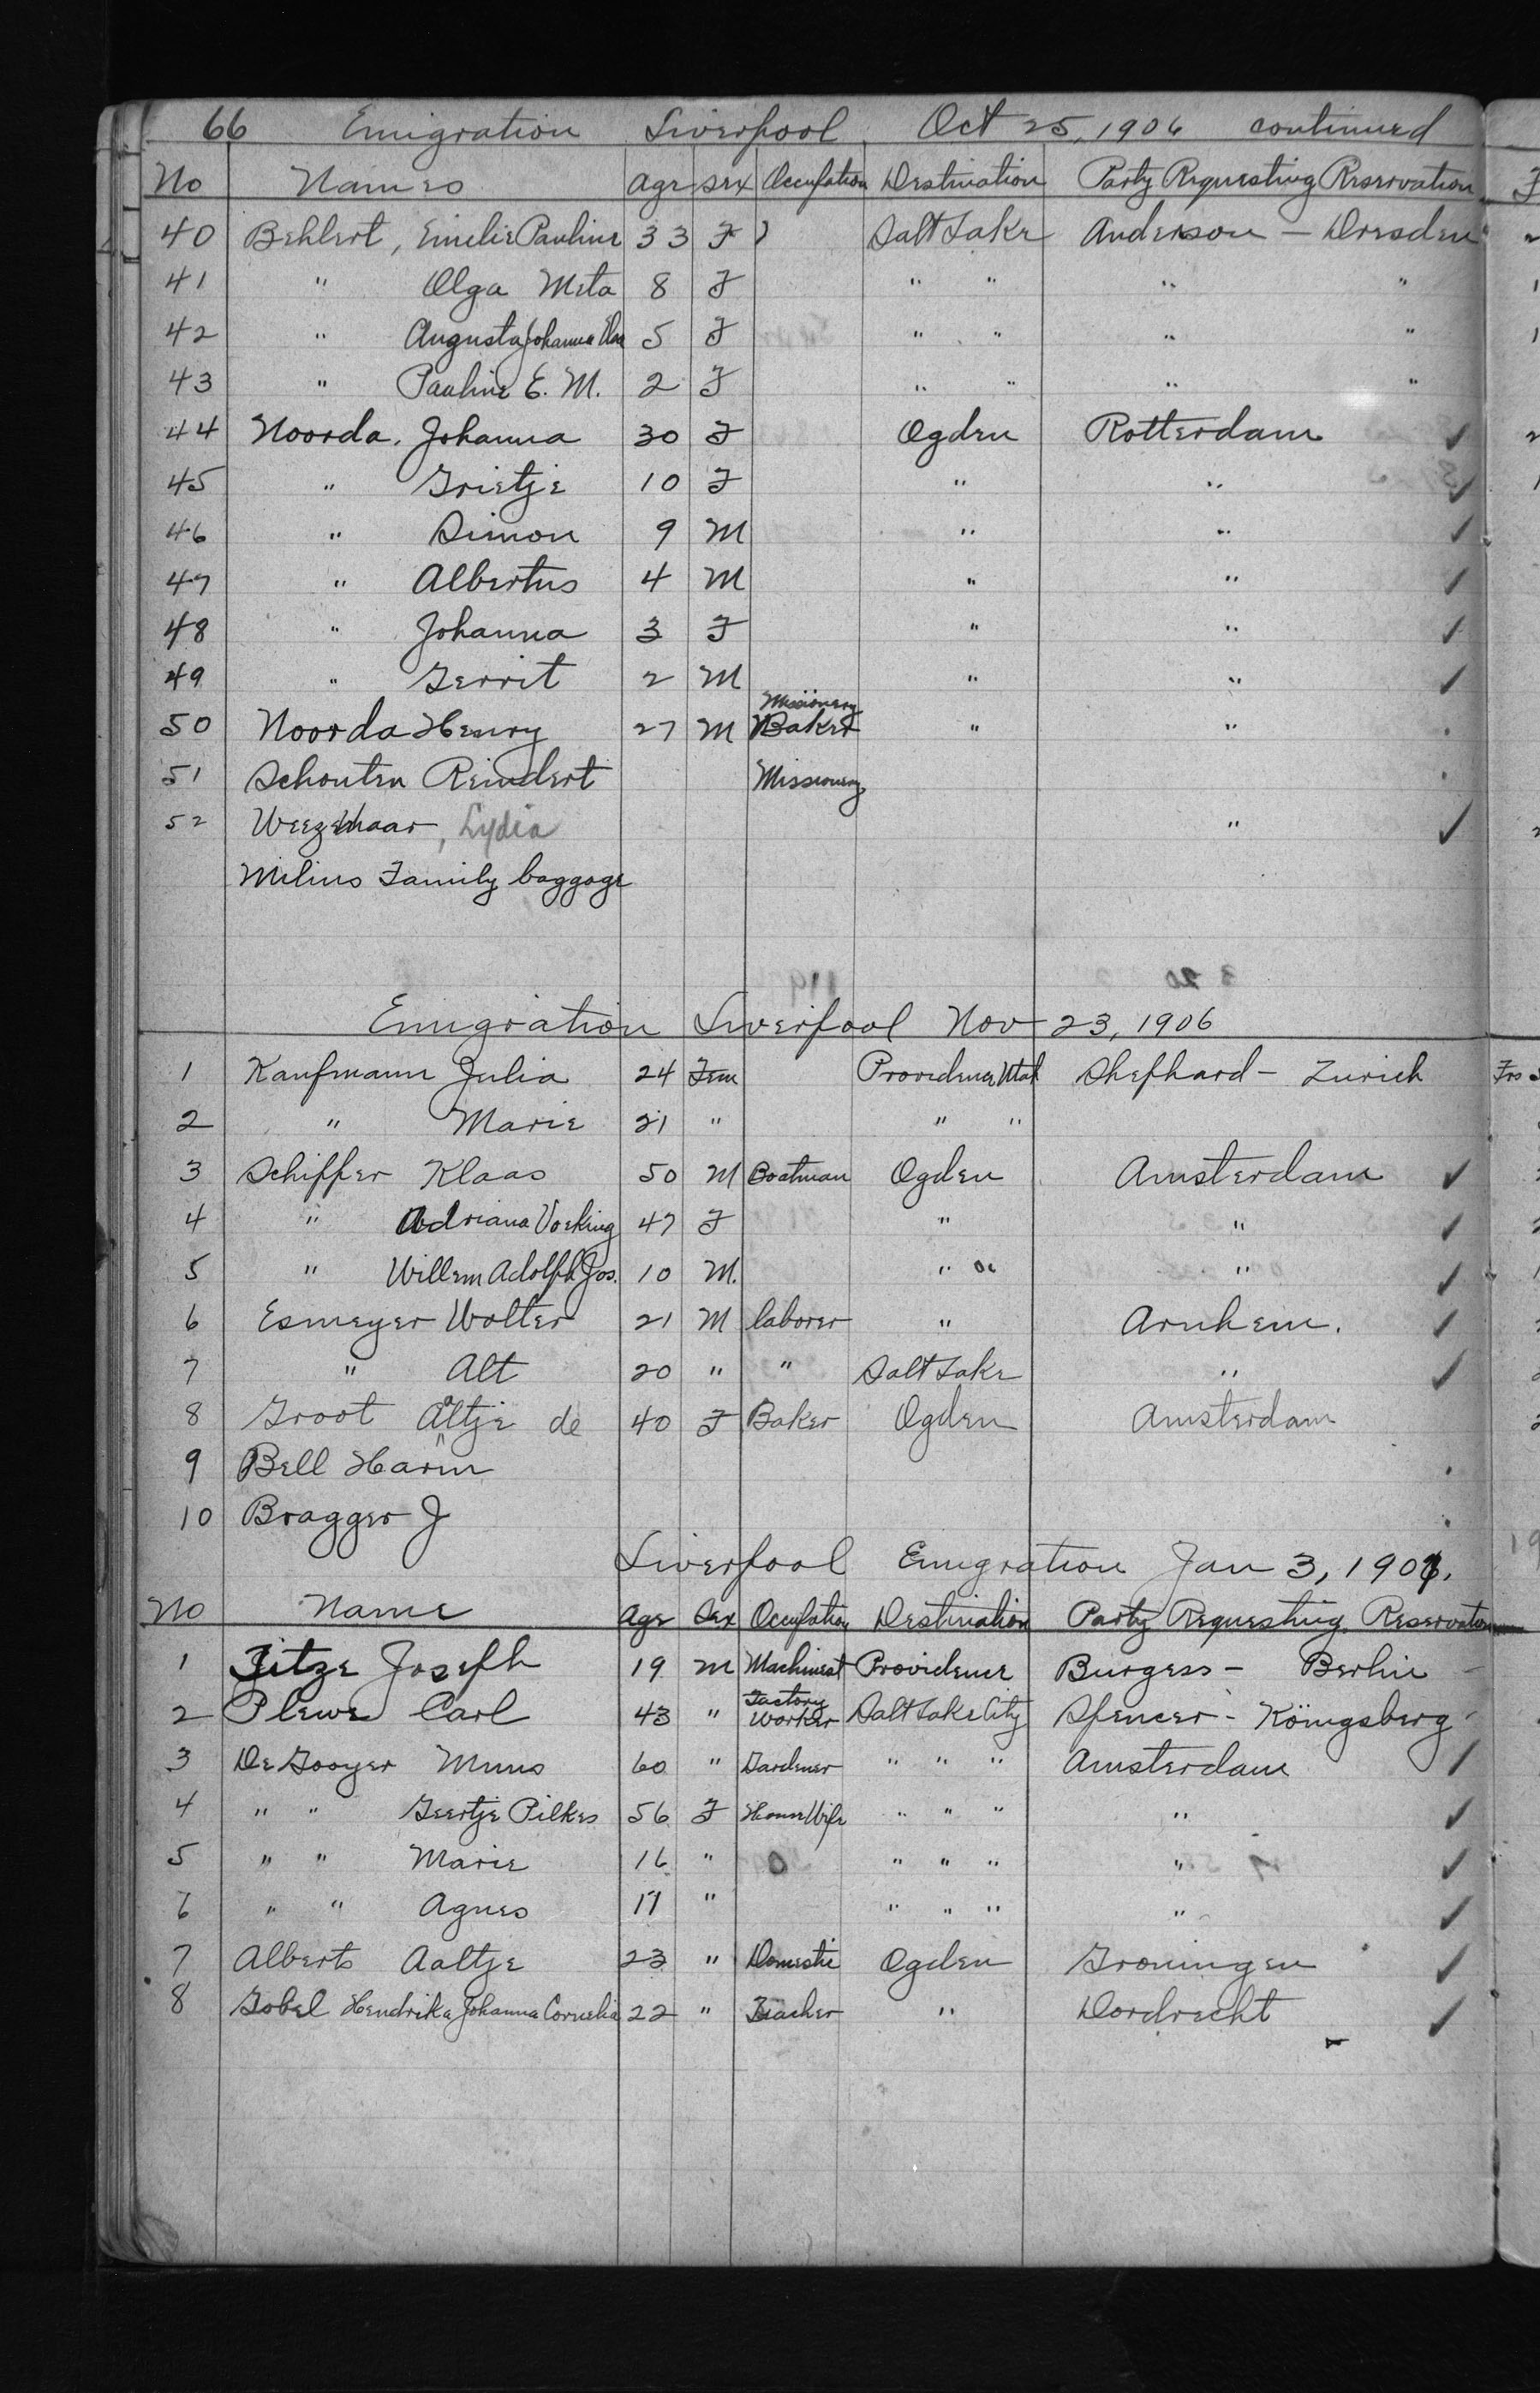 66 Emigration Liverpool Oct 25, 1906 continued
No Names Age Sex Occupation Destination Party Requesting Reservation
40 Behlert, Emelie Pauline 33 F Salt Lake Anderson – Dresden
41 " Olga Meta 8 F " " " "
42 " Augusta Johanna 5 F " " " "
43 " Pauline E. M. 2 F " " " "
44 Noorda, Johanna 30 F Ogden Rotterdam ✓
45 " Grietje 10 F " " ✓
46 " Simon 9 M " " ✓
47 " Albertus 4 M " " ✓
48 " Johanna 3 F " " ✓
49 " Gerrit 2 M " " ✓
Missionery
50 Noorda Henry 27 M Baker " "
51 Schouten Reindert Missionery
52 Weezenaar, Lydia " ✓
Milius Family baggage
Emigration Liverpool Nov 23, 1906
1 Kaufmann Julia 24 Fem Providence Utah Shephard – Zurich
2 " Marie 21 " " "
3 Schiffer Klaas 50 M Boatman Ogden Amsterdam ✓
4 " Adriana Voeking 47 F " " ✓
5 " Willem Adolph Jos. 10 M. " " ✓
6 Esmeyer Wolter 21 M laborer " Arnhem. ✓
7 " Alt 20 " " Salt Lake " ✓
8 Groot Altje de 40 F Baker Ogden Amsterdam
9 Bell Harm
10 Bragger J
Liverpool Emigration Jan 3, 1907.
No Name Age Sex Occupation Destination Party Requesting Reservation
1 Titze Joseph 19 M Machinest Providence Burgess – Berlin
2 Plewe Carl 43 " Factory Worker Salt Lake City Spencer – Königsberg
3 De Gooyer Muns 60 " Gardener " " " Amsterdam ✓
4 " " Geertje Pilkes 56 F House Wife " " " " ✓
5 " " Marie 16 " " " " " ✓
6 " " Agnes 11 " " " " " ✓
7 Alberts Aaltje 23 " Domestic Ogden Groningen ✓
8 Gobel Hendrika Johanna Cornelia 22 " Teacher " Dordrecht ✓